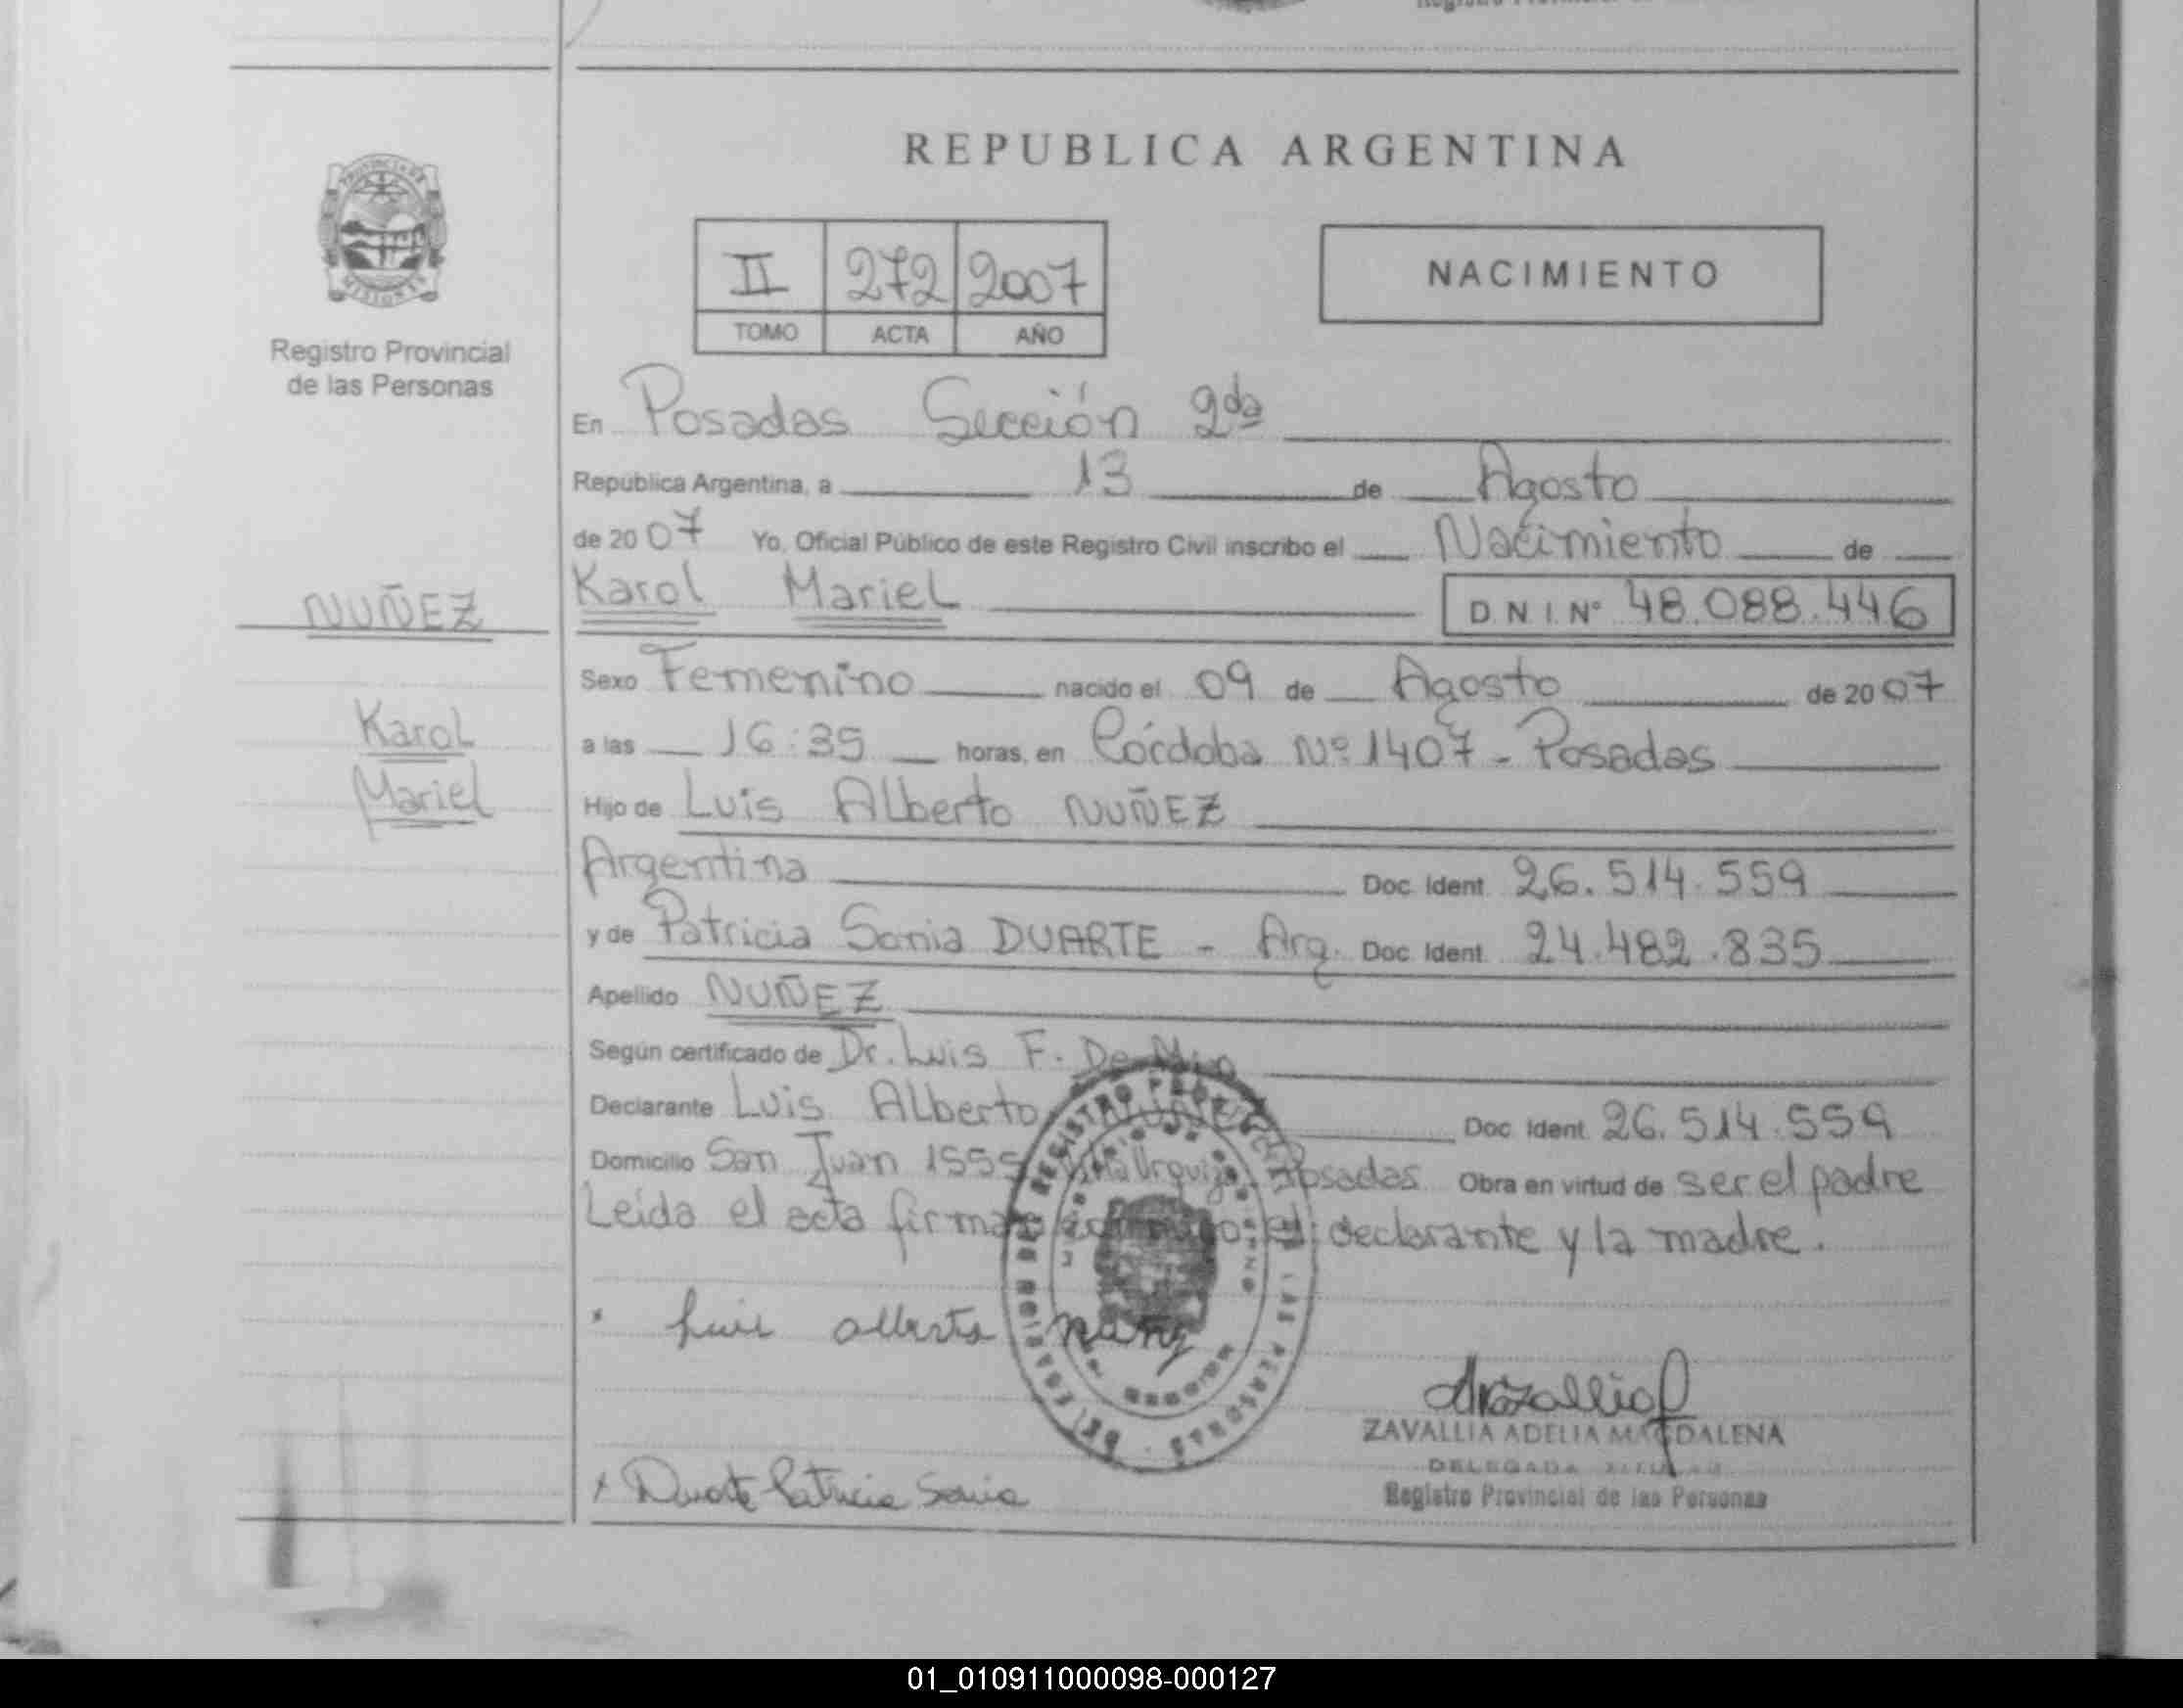 REPUBLICA ARGENTINA
PROVINCIA DE
MISIONES
Registro Provincial
de las Personas
II 272 2007
TOMO ACTA AÑO
NACIMIENTO
En Posadas Sección 2da
República Argentina, a 13 de Agosto
de 2007 Yo, Oficial Público de este Registro Civil inscribo el Nacimiento de
Karol Mariel D.N.I. N° 48.088.446
NUÑEZ
Karol
Mariel
Sexo Femenino nacido el 09 de Agosto de 2007
a las 16:35 horas, en Córdoba Nº 1407 - Posadas
Hijo de Luis Alberto NUÑEZ
Argentina Doc. Ident. 26.514.559
y de Patricia Sonia DUARTE - Arg. Doc. Ident. 24.482.835
Apellido NUÑEZ
Según certificado de Dr. Luis F. De
Declarante Luis Alberto Doc. Ident. 26.514.559
Domicilio San Juan 1555 Villa Urquiza Posadas Obra en virtud de ser el padre
Leída el acta firman conmigo el declarante y la madre.
Luis Alberto Nuñez
x Duarte Patricia Sonia
ZAVALLIA ADELIA MAGDALENA
DELEGADA TITULAR
Registro Provincial de las Personas
01_010911000098-000127